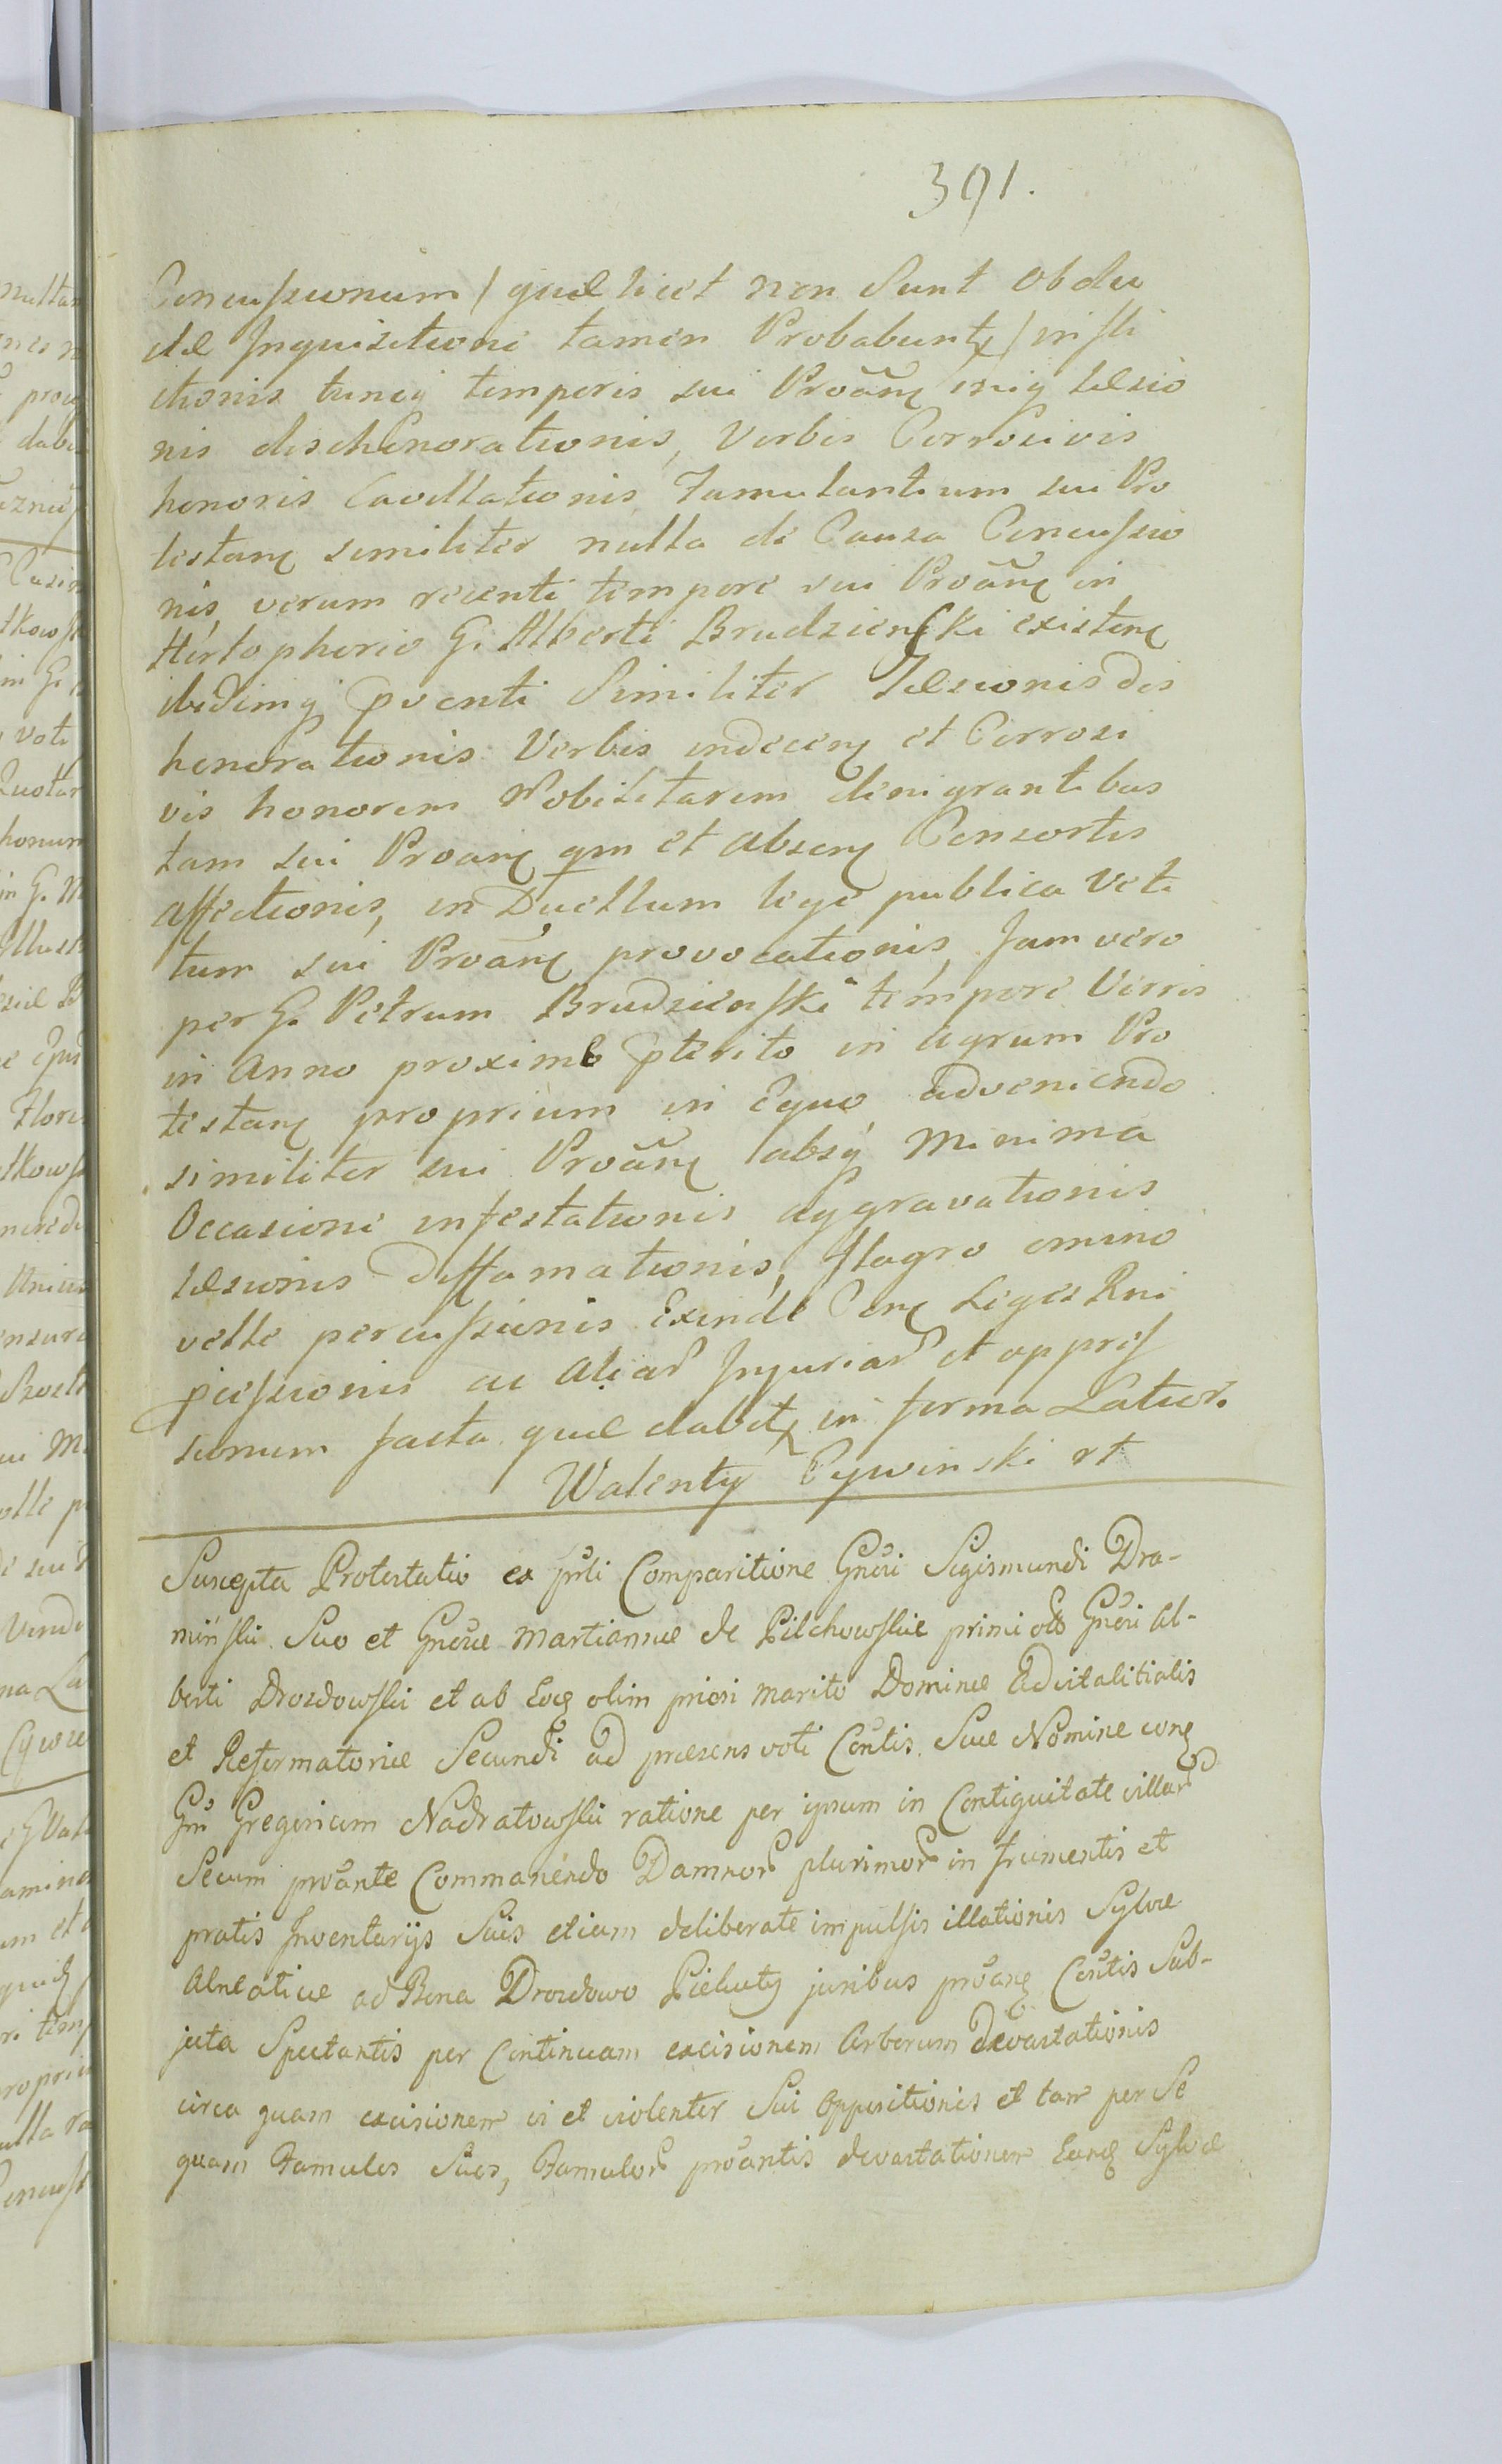 391.
Concussionum / quæ licet non sunt obdu
ctæ Inquisitione tamen Probabunt / infli
ctionis tuncq temporis sui Proãn læsio
nis dischonorationis, Verbis Corrosivis
honoris Cavillationis, Famulantium sui Pro
testan similiter nulla de Causa Concussio
nis, verum recenti tempore sui Proãn in
Hortophorio G. Alberti Brudzienski existen
ibidimq pventi Similiter Læsionis dis
honorationis Verbis indecen et Corrosi
vis honorem Nobilitarem denigrantibus
tam sui Proan qm et absen Consortis
affectionis, in Duellum lege publica Veti
tum sui Proãn provocationis, Jam vero
per G. Petrum Brudzienski tempore Verris
in Anno proxime pterito in agrum Pro
testan proprium in Equo adveniendo
similiter sui Proãn absq Minima
Occasione infestationis aggravationis
læsionis Diffamationis, flagro omino
velle percussionis Exinde Cen Leges Rni
picissionis ac aliar Injuriar et oppres
sionum facta quæ dabit in forma Latior.
Walenty Cywinski rt
Suscepta Protestatio ex pñti Comparitione Gnõsi Sigismundi Dra-
minski Suo et Gnosæ Martiannæ de Pilchowskie primi oto Gnõsi Al-
berti Drozdowski et ab Eoq olim priori marito Dominæ Advitalitialis
et Reformatoriæ Secundi ad præsens voti Contis Suæ Nomine con
Gm Gregorium Nadratowski ratione per ipsum in Contiguitate villar
Secum proãnte Commanendo Damnor plurimor in frumentis et
pratis Inventarijs Suis etiam deliberate impulsis illationis Sylvæ
Alneaticæ ad Bona Drozdowo Pieluty juribus proãn Contis Sub-
jecta Spectantis per Continuam excisionem Arborum Devastationis
circa quam excisionem vi et violenter Sui Oppositionis et tam per Se
quam Famulos Suos, Famulor proãntis devastationem Eandem Sylvæ